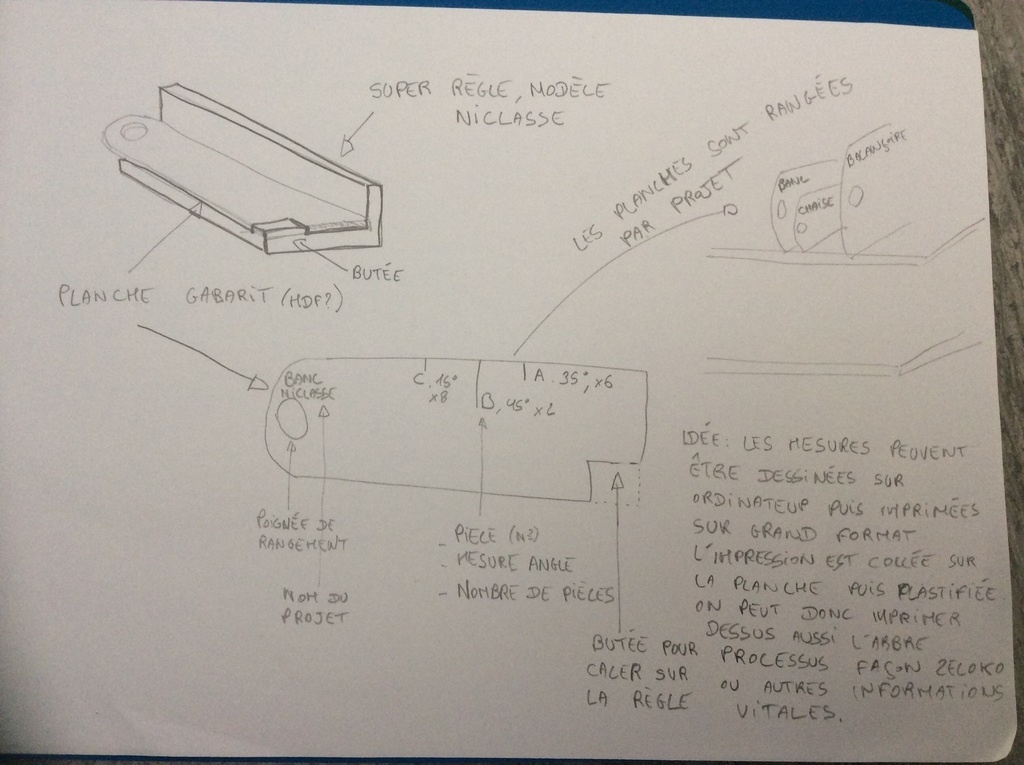 SUPER RÈGLE, MODÈLE
NICLASSE
BUTÉE
PLANCHE GABARIT (MDF?)
LES PLANCHES SONT RANGÉES
PAR PROJET
BANC
CHAISE
BALANÇOIRE
BANC
NICLASSE
C. 15°
x8
B, 45° x2
A. 35°, x6
POIGNÉE DE
RANGEMENT
NOM DU
PROJET
- PIÈCE (N°)
- MESURE ANGLE
- NOMBRE DE PIÈCES
BUTÉE POUR
CALER SUR
LA RÈGLE
IDÉE: LES MESURES PEUVENT
ÊTRE DESSINÉES SUR
ORDINATEUR PUIS IMPRIMÉES
SUR GRAND FORMAT
L'IMPRESSION EST COLLÉE SUR
LA PLANCHE PUIS PLASTIFIÉE
ON PEUT DONC IMPRIMER
DESSUS AUSSI L'ARBRE
PROCESSUS FAÇON ZELOKO
OU AUTRES INFORMATIONS
VITALES.